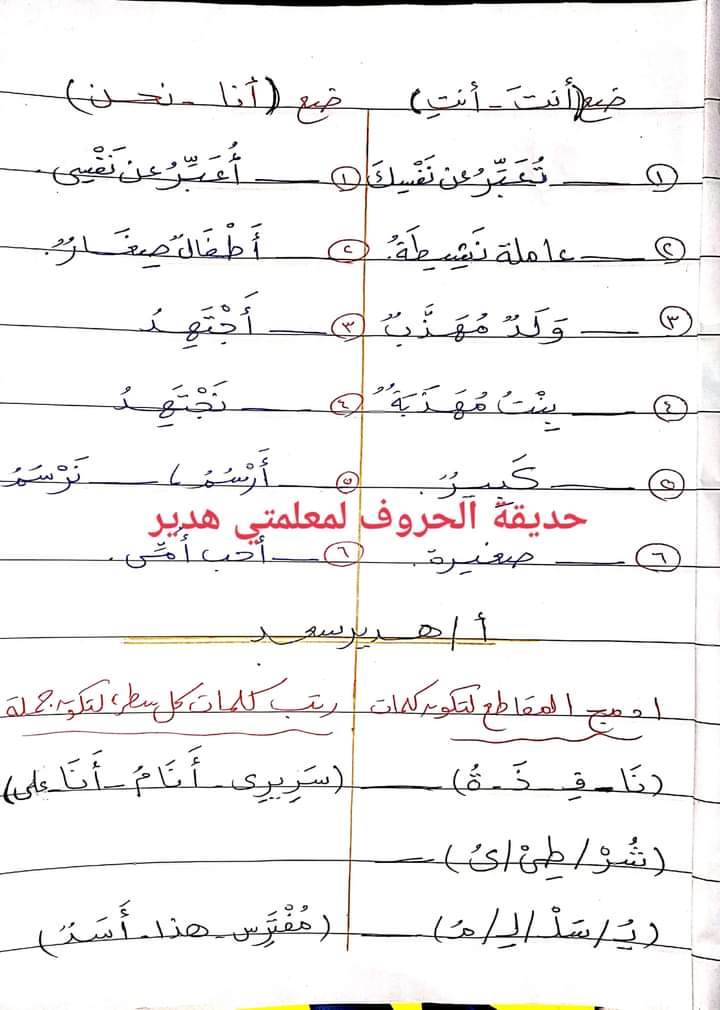 ضع (أنتَ - أنتِ) ضع (أنا - نحن)
١ ــــ تُعَبِّرُ عن نَفْسِكَ ١ ــــ أُعَبِّرُ عن نَفْسِى.
٢ ــــ عاملة نَشِيطَةٌ. ٢ ــــ أَطْفَالٌ صِغَارٌ.
٣ ــــ وَلَدٌ مُهَذَّبٌ ٣ ــــ أَجْتَهِدُ
٤ ــــ بِنْتٌ مُهَذَبَةٌ ٤ ــــ نَجْتَهِدُ
٥ ــــ كَبِيرٌ. ٥ ــــ أَرْسُمُ، ــــ نَرْسَمُ
حديقة الحروف لمعلمتي هدير
٦ ــــ صغيرة. ٦ ــــ أحب أُمِّى.
أ / هدير سعد
ادمج المقاطع لتكون كلمات رتب كلمات كل سطر، لتكون جملة
(نَا - فِ - ذَ - ةُ) ــــ (سَرِيرِى - أَنَامُ - أَنَا - على)
(شُرْ / طِىْ / ىُ) ــــ
(يَُ / سَلْ / لِ / مُ) ــــ (مُفْتَرِس - هذا - أَسَدٌ)